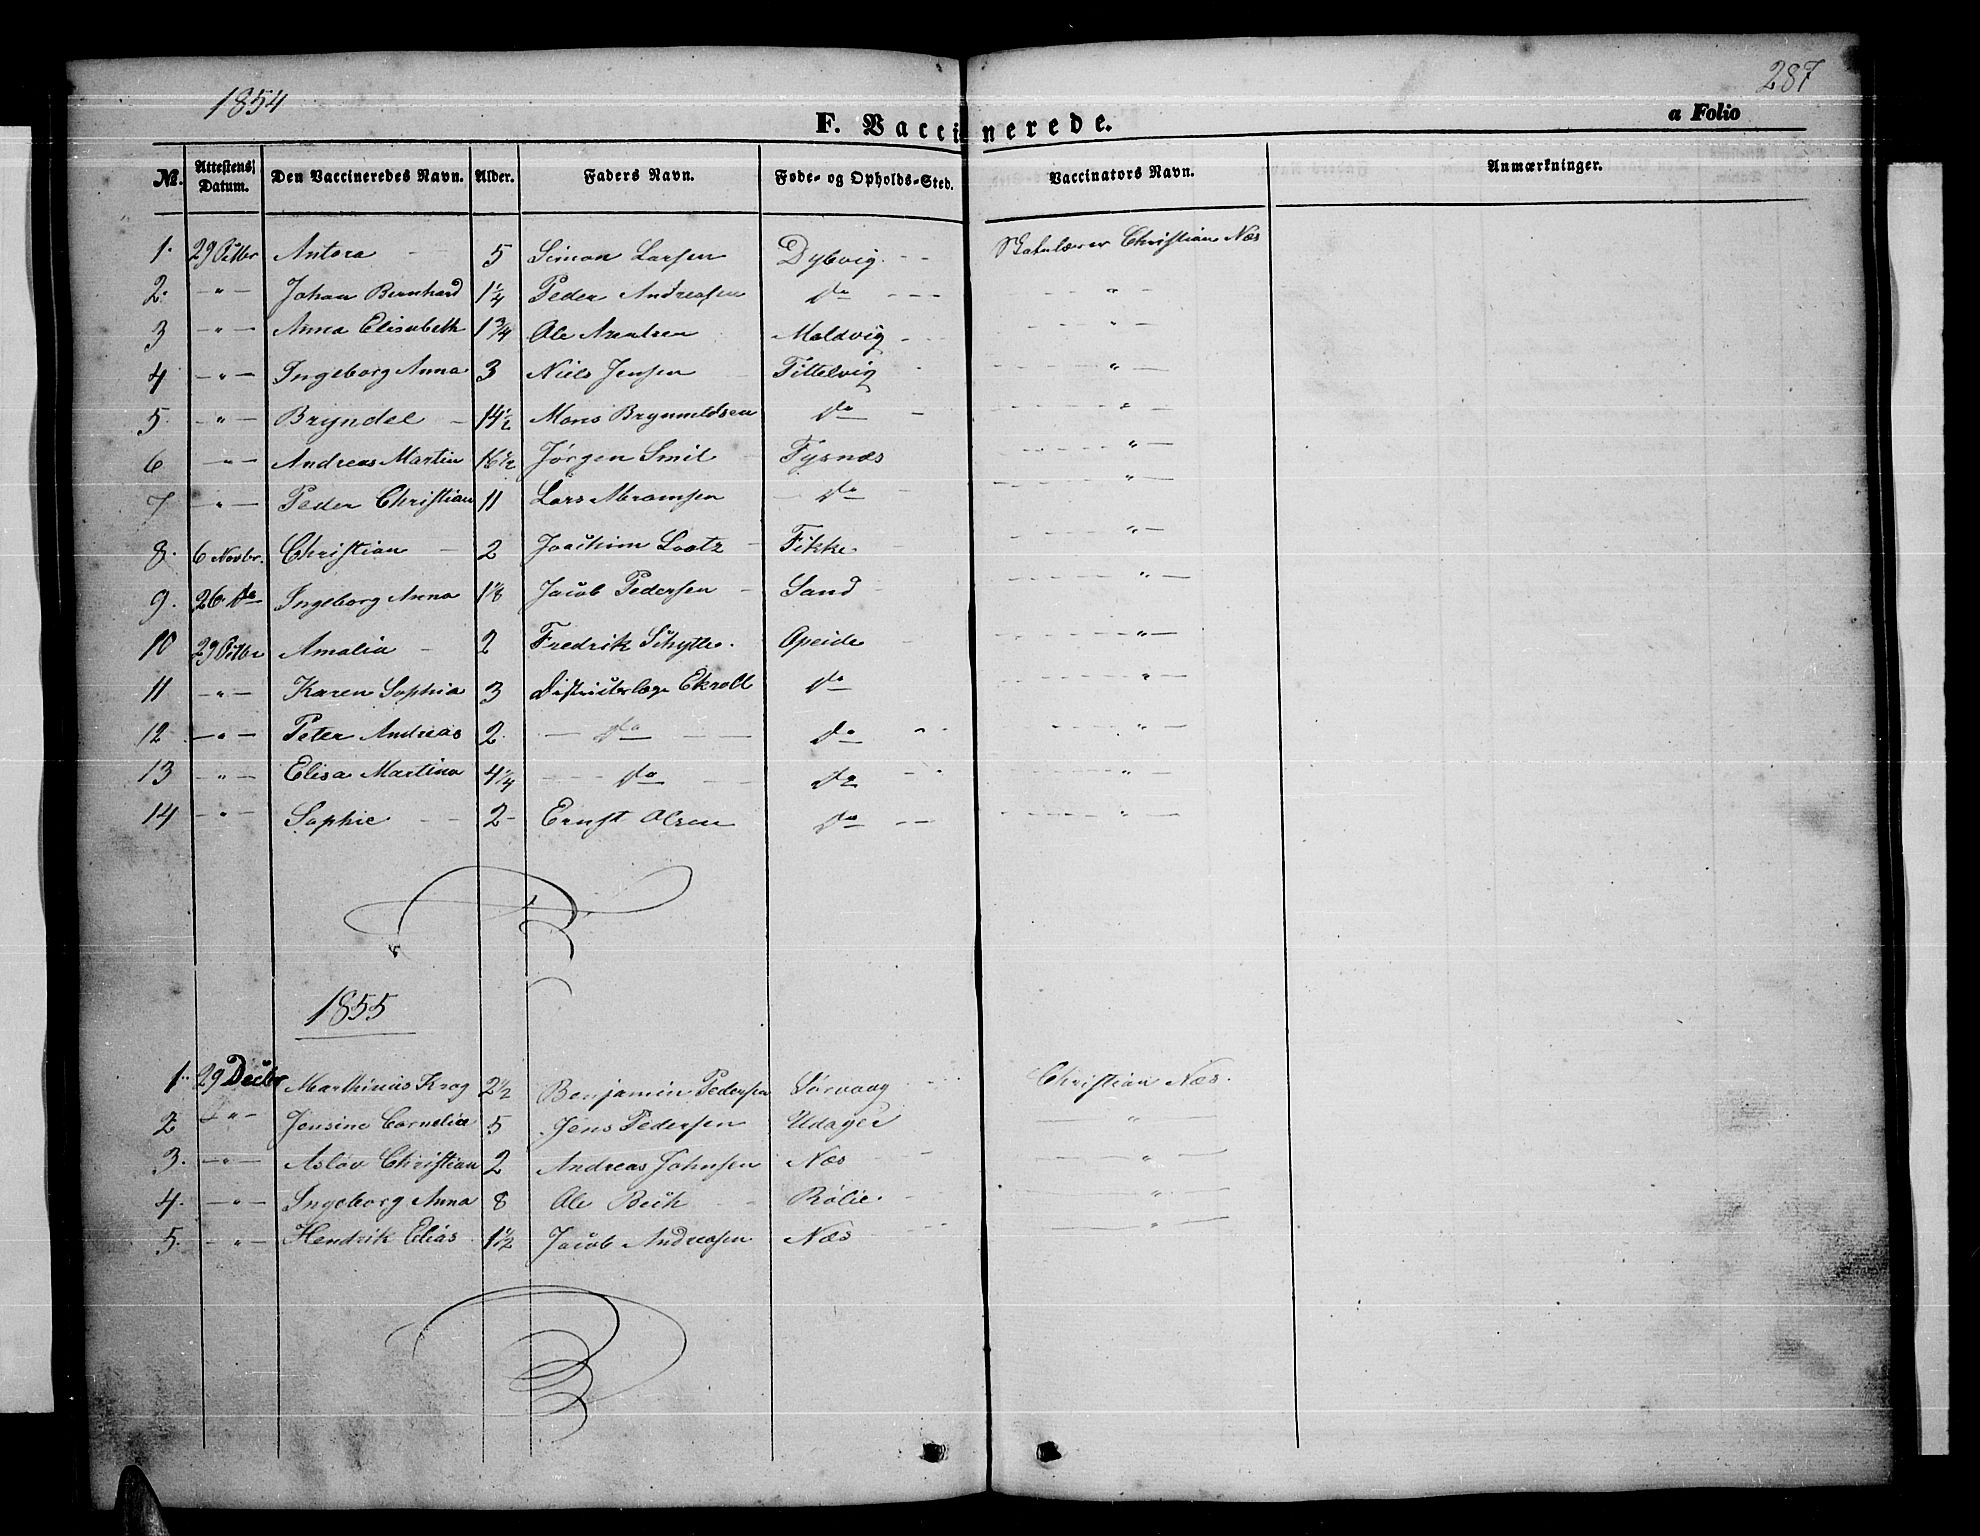 1854
287
F. Vaccinerede.
a Folio
No. Attestens Datum. Den Vaccineredes Navn. Alder. Faders Navn. Føde- og Opholds-Sted. Vaccinators Navn. Anmærkninger.
1. 29 Octbr Antora 5 Simon Larsen Dybvig. Christian Næs
2. " Johan Bernhard 1 1/4 Peder Andreasen do "
3 " Anna Elisabeth 1 3/4 Ole Arentsen Moldvig "
4 " Ingeborg Anna 3 Niels Jensen Tittelvig "
5 " Bryndel 14 1/2 Mons Brynnildsen do "
6 " Andreas Martin 16 1/2 Jørgen Smit Tysnæs "
7 " Peder Christian 11 Lars Abramsen do "
8. 6 Novbr. Christian 2 Joachim Lootz Fikke "
9. 26. do Ingeborg Anna 1 1/8 Jacob Pedersen Sand "
10 29 Octbr Amalia 2 Fredrik Schytte. Opeide "
11 " Karen Sophia 3 Districtslæge Ekroll do "
12 " Peter Andreas 2 do do "
13 " Elisa Martina 4 1/4 do do "
14 " Sophie 2 Ernst Olsen do "
1855
1. 29 Decbr Marthinus Krog 2 1/2 Benjamin Pedersen Sørvaag Christian Næs.
2 " Jensine Cornelia 5 Jens Pedersen "
3. " Asløv Christian 2 Andreas Johnsen Næs "
4. " Ingeborg Anna 8 Ole Beck Rølie. "
5. " Hendrik Elias 1 1/2 Jacob Andreasen Næs "